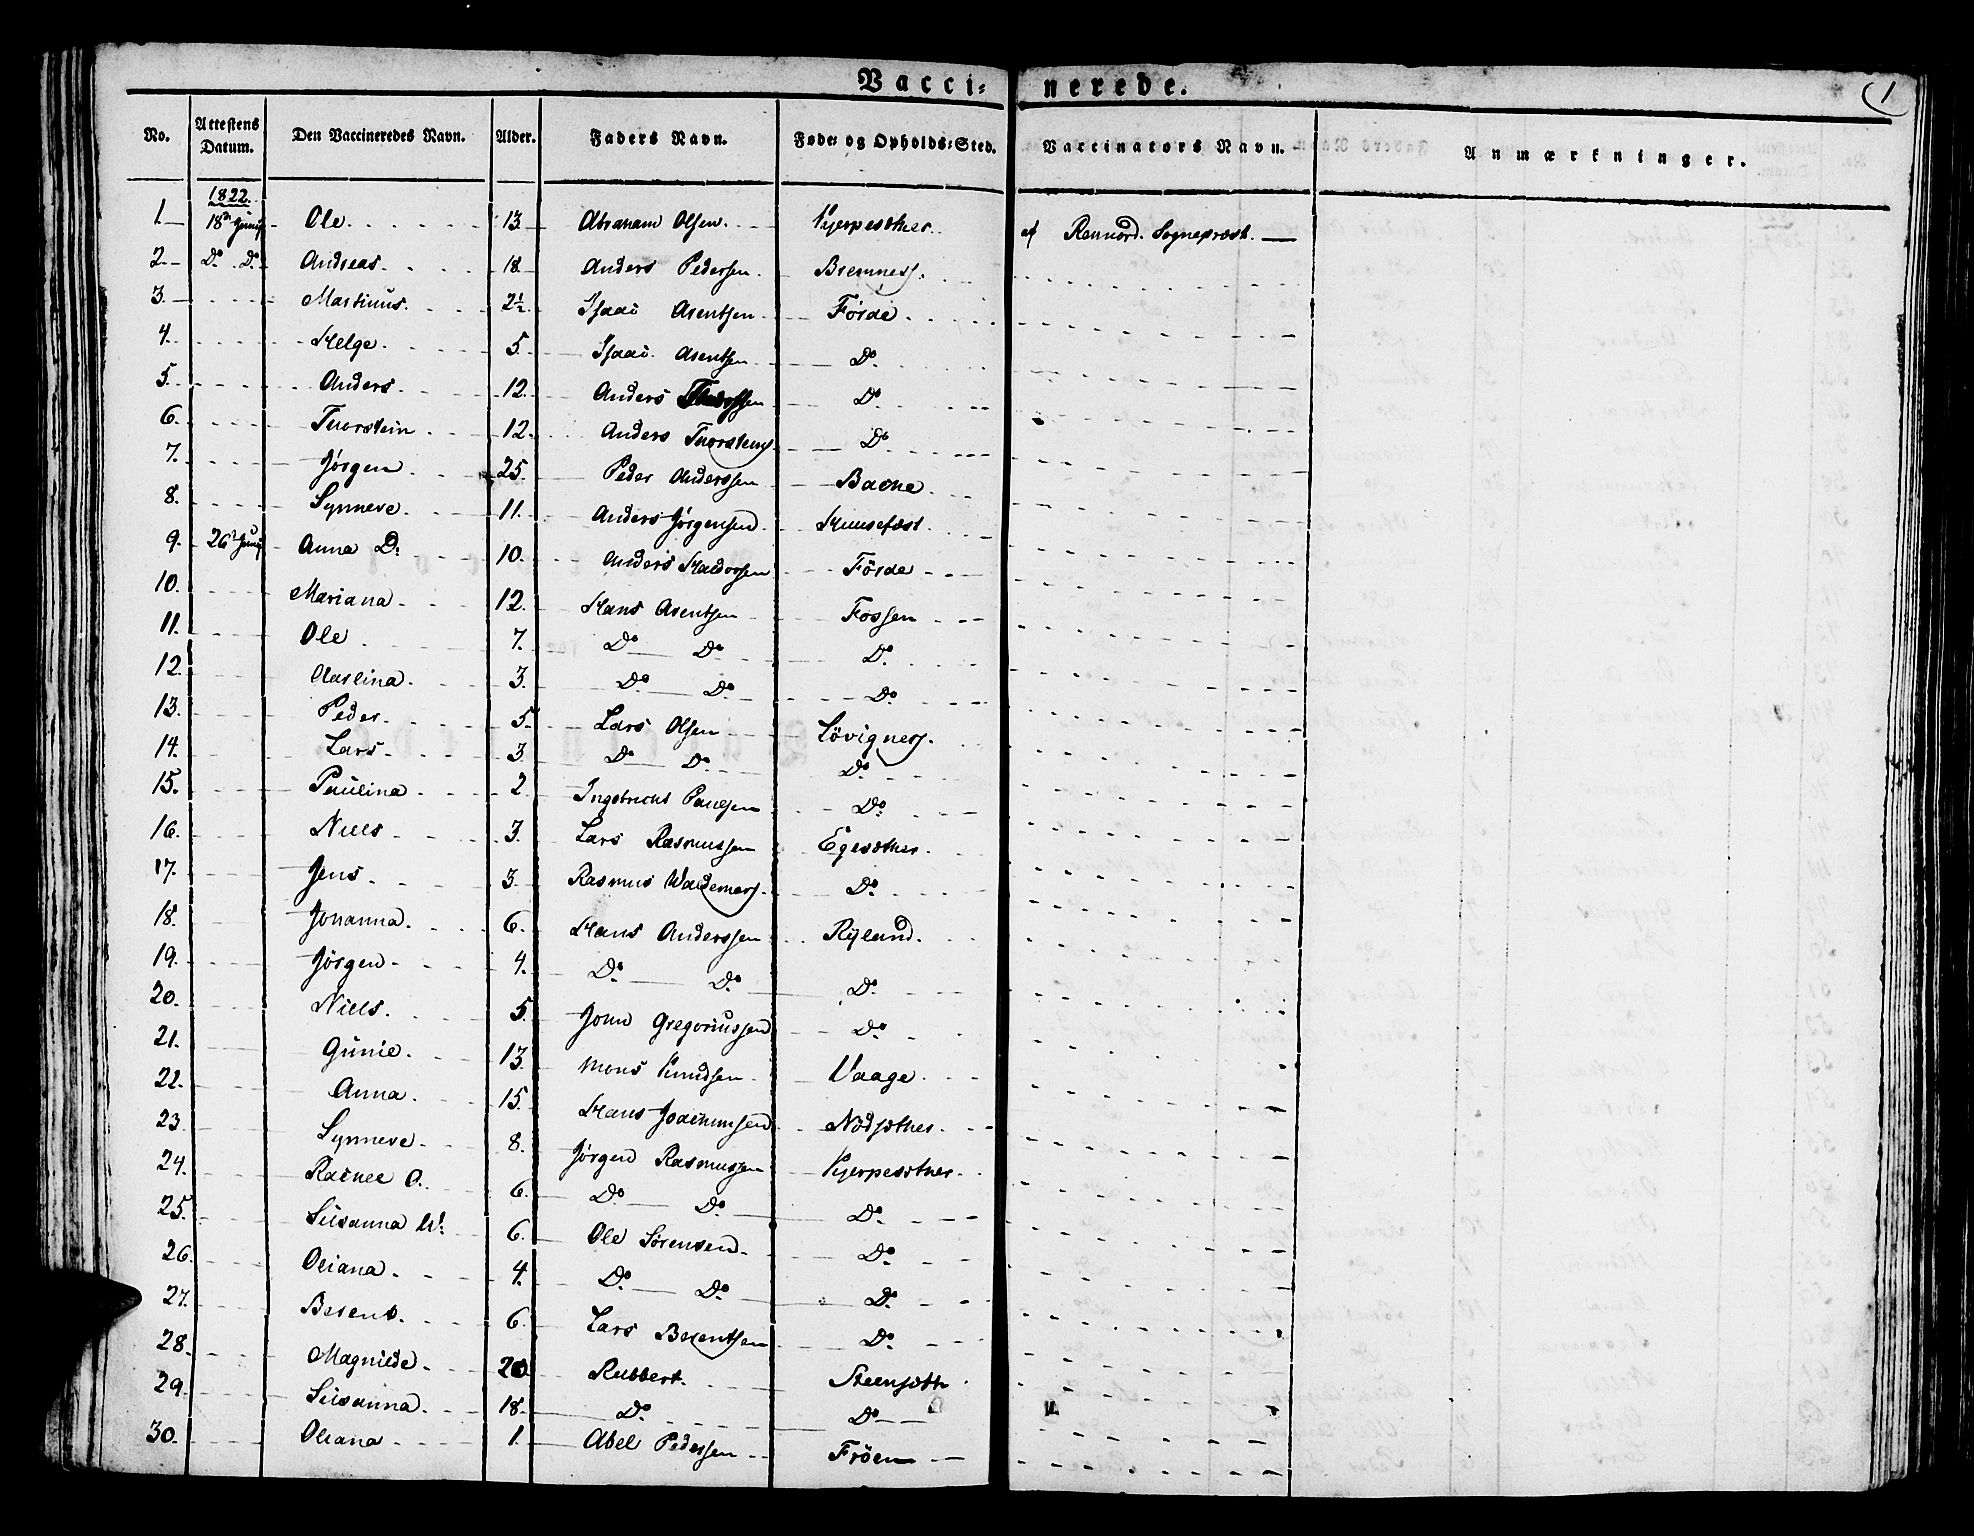 Vacci- nerede.
1
No. Attestens Datum. Den Vaccineredes Navn. Alder. Faders Navn. Føde- og Opholds-Sted. Vaccinators Navn. Anmærkninger.
1822.
1. 18de Junij Ole. 13 Abraham Olsen. Kjerpesæther. af Rennord. Sognepræst.
2. Do. Do. Andreas. 18 Anders Pedersen. Bremness.
3. Martinus. 2½ Isaac Arentsen Förde.
4. Helge. 5. Isaac Arentsen Do.
5. Anders. 12. Anders Do
6. Thorstein. 12. Anders Thorstens. Do
7. Jörgen. 25. Peder Anderssen Bache.
8. Synneve. 11. Anders Jörgensen Huusefæst.
9. 26de Junij Anna D: 10. Anders Haldorsen Förde
10. Mariana. 12. Hans Arentsen Fossen
11. Ole 7. Do Do Do.
12. Aaselina. 3. Do. Do. Do.
13. Peder. 5. Lars Olsen Lövigness.
14. Lars. 3 Do Do. Do.
15. Paulina. 2 Ingebricht Paulsen Do.
16. Niels. 3. Lars Rasmussen Egesæther.
17. Jens. 3. Rasmus Waldemars. Do.
18. Johanna. 6. Hans Anderssen Ryland.
19. Jörgen. 4. Do. Do. Do.
20. Niels. 5. John Gregoriussen Do.
21. Gunile. 13. Mons Knudsen Vaage.
22. Anna. 15. Hans Joachimsen Nodsæther.
23. Synneve. 8. Jörgen Rasmussen Kjerpesæther.
24. Rachel O. 6. Do. Do. Do.
25. Susanna W. 6. Ole Sörensen. Do.
26. Oliana. 4. Do. Do. Do.
27. Berent. 6. Lars Berentsen Do.
28. Magnilde. 20 Rubbert. Steensæth.
29. Susanna. 18. Do. Do
30. Oliana 1. Abel Pederssen Fröen